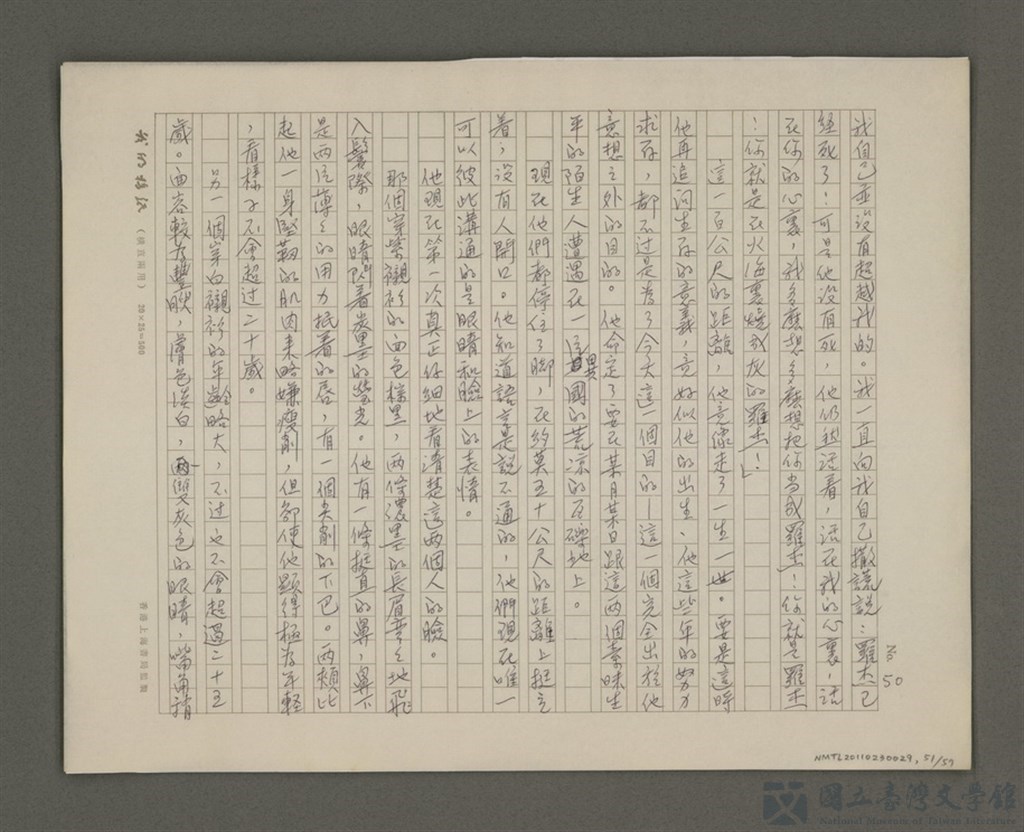 No. 50
我自己並没有超越我的。我一直向我自己撒謊說：羅杰已
経死了！可是他没有死，他仍然活着，活在我的心裏，活
在你的心裏，我多麼想多麼想把你当成羅杰！你就是羅杰
！你就是在火海裏燒成灰的羅杰！」
這一百公尺的距離，他竟像走了一生一世。要是這時
他再追问生存的意義，竟好似他的出生、他這些年的努力
求存，都不过是為了今天這一個目的—這一個完全出於他
意想之外的目的。他命定了要在某月某日跟這两個素昧生
平的陌生人遭遇在一這異國的荒凉的瓦礫地上。
現在他們都停住了脚，在約莫五十公尺的距離上挺立
着；没有人開口。他知道語言是説不通的，他們現在唯一
可以彼此溝通的是眼睛和臉上的表情。
他現在第一次真正仔細地看清楚這两個人的臉。
那個穿紫襯衫的面色棕黑，两條濃黑的長眉毛地飛
入鬢際，眼睛閃着炭墨的螢光。他有一條挺直的鼻，鼻下
是两片薄々的用力抿着的唇，有一個尖削的下巴。两頰比
起他一身堅韌的肌肉来略嫌瘦削，但卻使他顯得極為年輕
，看樣子不會超过二十歲。
另一個穿白襯衫的年齡略大，不过也不會超過二十五
歲。面容較為豐腴，膚色淡白，两隻灰色的眼睛，嘴角清
我的稿纸（横直兩用） 20×25=500
香港上海書局監製
NMTL20110230029, 51/57
國立臺灣文學館
National Museum of Taiwan Literature